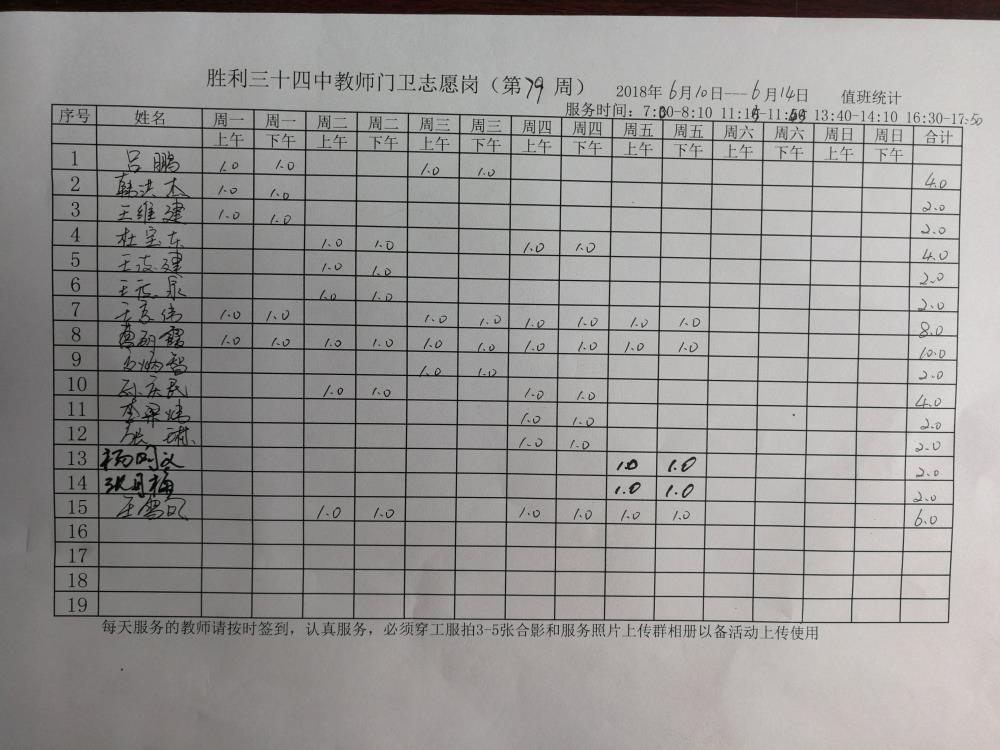 胜利三十四中教师门卫志愿岗（第79周）
2018年6月10日---6月14日 值班统计
服务时间：7:30-8:10 11:15-11:45 13:40-14:10 16:30-17:50
序号 姓名 周一 周一 周二 周二 周三 周三 周四 周四 周五 周五 周六 周六 周日 周日 合计
上午 下午 上午 下午 上午 下午 上午 下午 上午 下午 上午 下午 上午 下午
1 吕鹏 1.0 1.0 1.0 1.0 4.0
2 韩洪杰 1.0 1.0 2.0
3 王维建 1.0 1.0 2.0
4 杜宝东 1.0 1.0 1.0 1.0 4.0
5 王 建 1.0 1.0 2.0
6 王 泉 1.0 1.0 2.0
7 伟 1.0 1.0 1.0 1.0 1.0 1.0 1.0 1.0 8.0
8 1.0 1.0 1.0 1.0 1.0 1.0 1.0 1.0 1.0 1.0 10.0
9 炳智 1.0 1.0 2.0
10 孙庆民 1.0 1.0 1.0 1.0 4.0
11 李 1.0 1.0 2.0
12 张琳 1.0 1.0 2.0
13 杨 1.0 1.0 2.0
14 张月梅 1.0 1.0 2.0
15 王 1.0 1.0 1.0 1.0 1.0 1.0 6.0
16
17
18
19
每天服务的教师请按时签到，认真服务，必须穿工服拍3-5张合影和服务照片上传群相册以备活动上传使用